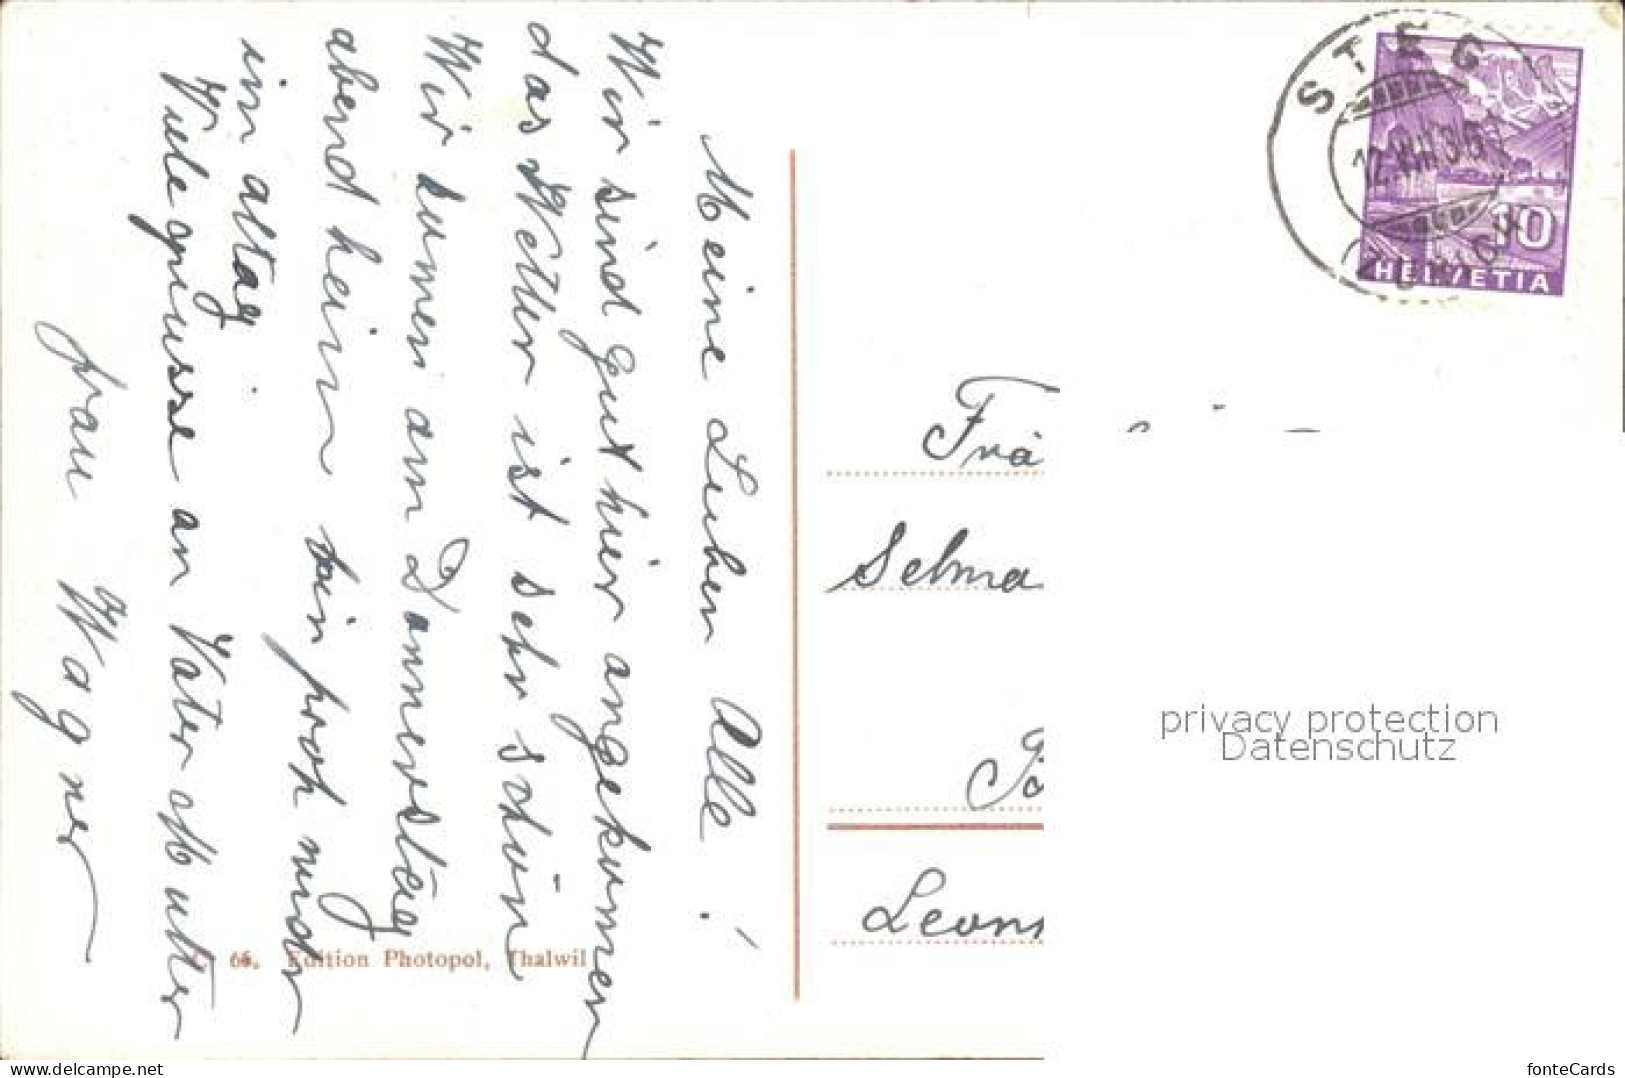 Meine Lieben Alle!
Wir sind gut hier angekommen
das Wetter ist sehr schön
Wir kommen am Donnerstag
abend heim bin froh wider
im alltag
Viele grüsse an Vater & Mutter
frau Wagner
66. Edition Photopol, Thalwil
STEG
12.VIII.36
10
HELVETIA
Frä
Selma
privacy protection
Datenschutz
www.delcampe.net
fonteCards